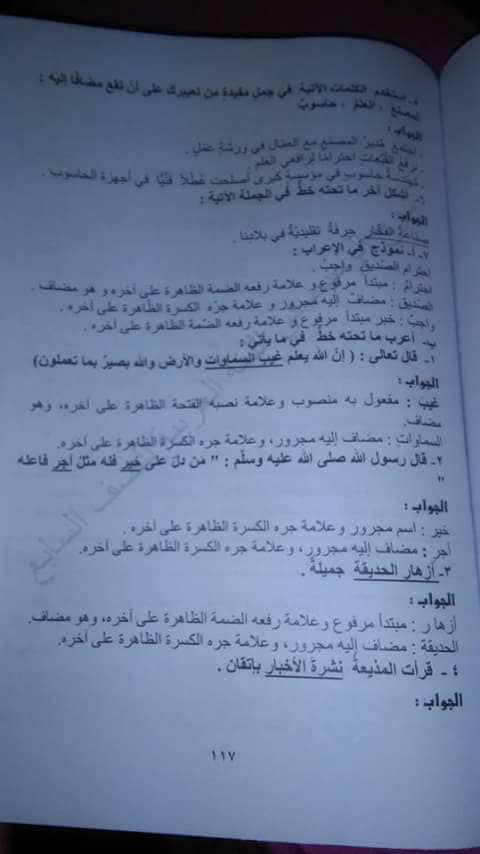 ٥- استخدم الكلمات الآتية في جمل مفيدة من تعبيرك على أن تقع مضافًا إليه :
المصنع ، العلم ، حاسوب
الجواب :
اجتمع مدير المصنع مع العمال في ورشة عمل .
نرفع القبعات احترامًا لرافعي العلم .
حاسوب في مؤسسة كبرى أصلحت عطلًا فنيًا في أجهزة الحاسوب .
٦- أشكل آخر ما تحته خط في الجملة الآتية :
الجواب :
صناعة الفخار حرفة تقليدية في بلادنا .
٧- أ- نموذج في الإعراب :
احترام الصديق واجب .
احترام : مبتدأ مرفوع و علامة رفعه الضمة الظاهرة على آخره و هو مضاف .
الصديق : مضاف إليه مجرور و علامة جره الكسرة الظاهرة على آخره .
واجب : خبر مبتدأ مرفوع و علامة رفعه الضمة الظاهرة على آخره .
ب- أعرب ما تحته خط في ما يأتي :
١- قال تعالى : ( إنّ الله يعلم غيبَ السماوات والأرض والله بصيرٌ بما تعملون)
الجواب :
غيبَ : مفعول به منصوب وعلامة نصبه الفتحة الظاهرة على آخره، وهو
مضاف.
السماوات : مضاف إليه مجرور، وعلامة جره الكسرة الظاهرة على آخره.
٢- قال رسول الله صلى الله عليه وسلّم : " من دلّ على خير فله مثلُ أجر فاعله
"
الجواب :
خير : اسم مجرور و علامة جره الكسرة الظاهرة على آخره .
أجر : مضاف إليه مجرور، وعلامة جره الكسرة الظاهرة على آخره.
٣- أزهار الحديقة جميلةٌ .
الجواب :
أزها ر : مبتدأ مرفوع وعلامة رفعه الضمة الظاهرة على آخره، وهو مضاف.
الحديقة : مضاف إليه مجرور، وعلامة جره الكسرة الظاهرة على آخره.
٤ - قرأت المذيعةُ نشرة الأخبار بإتقان .
الجواب :
١١٧
السابع